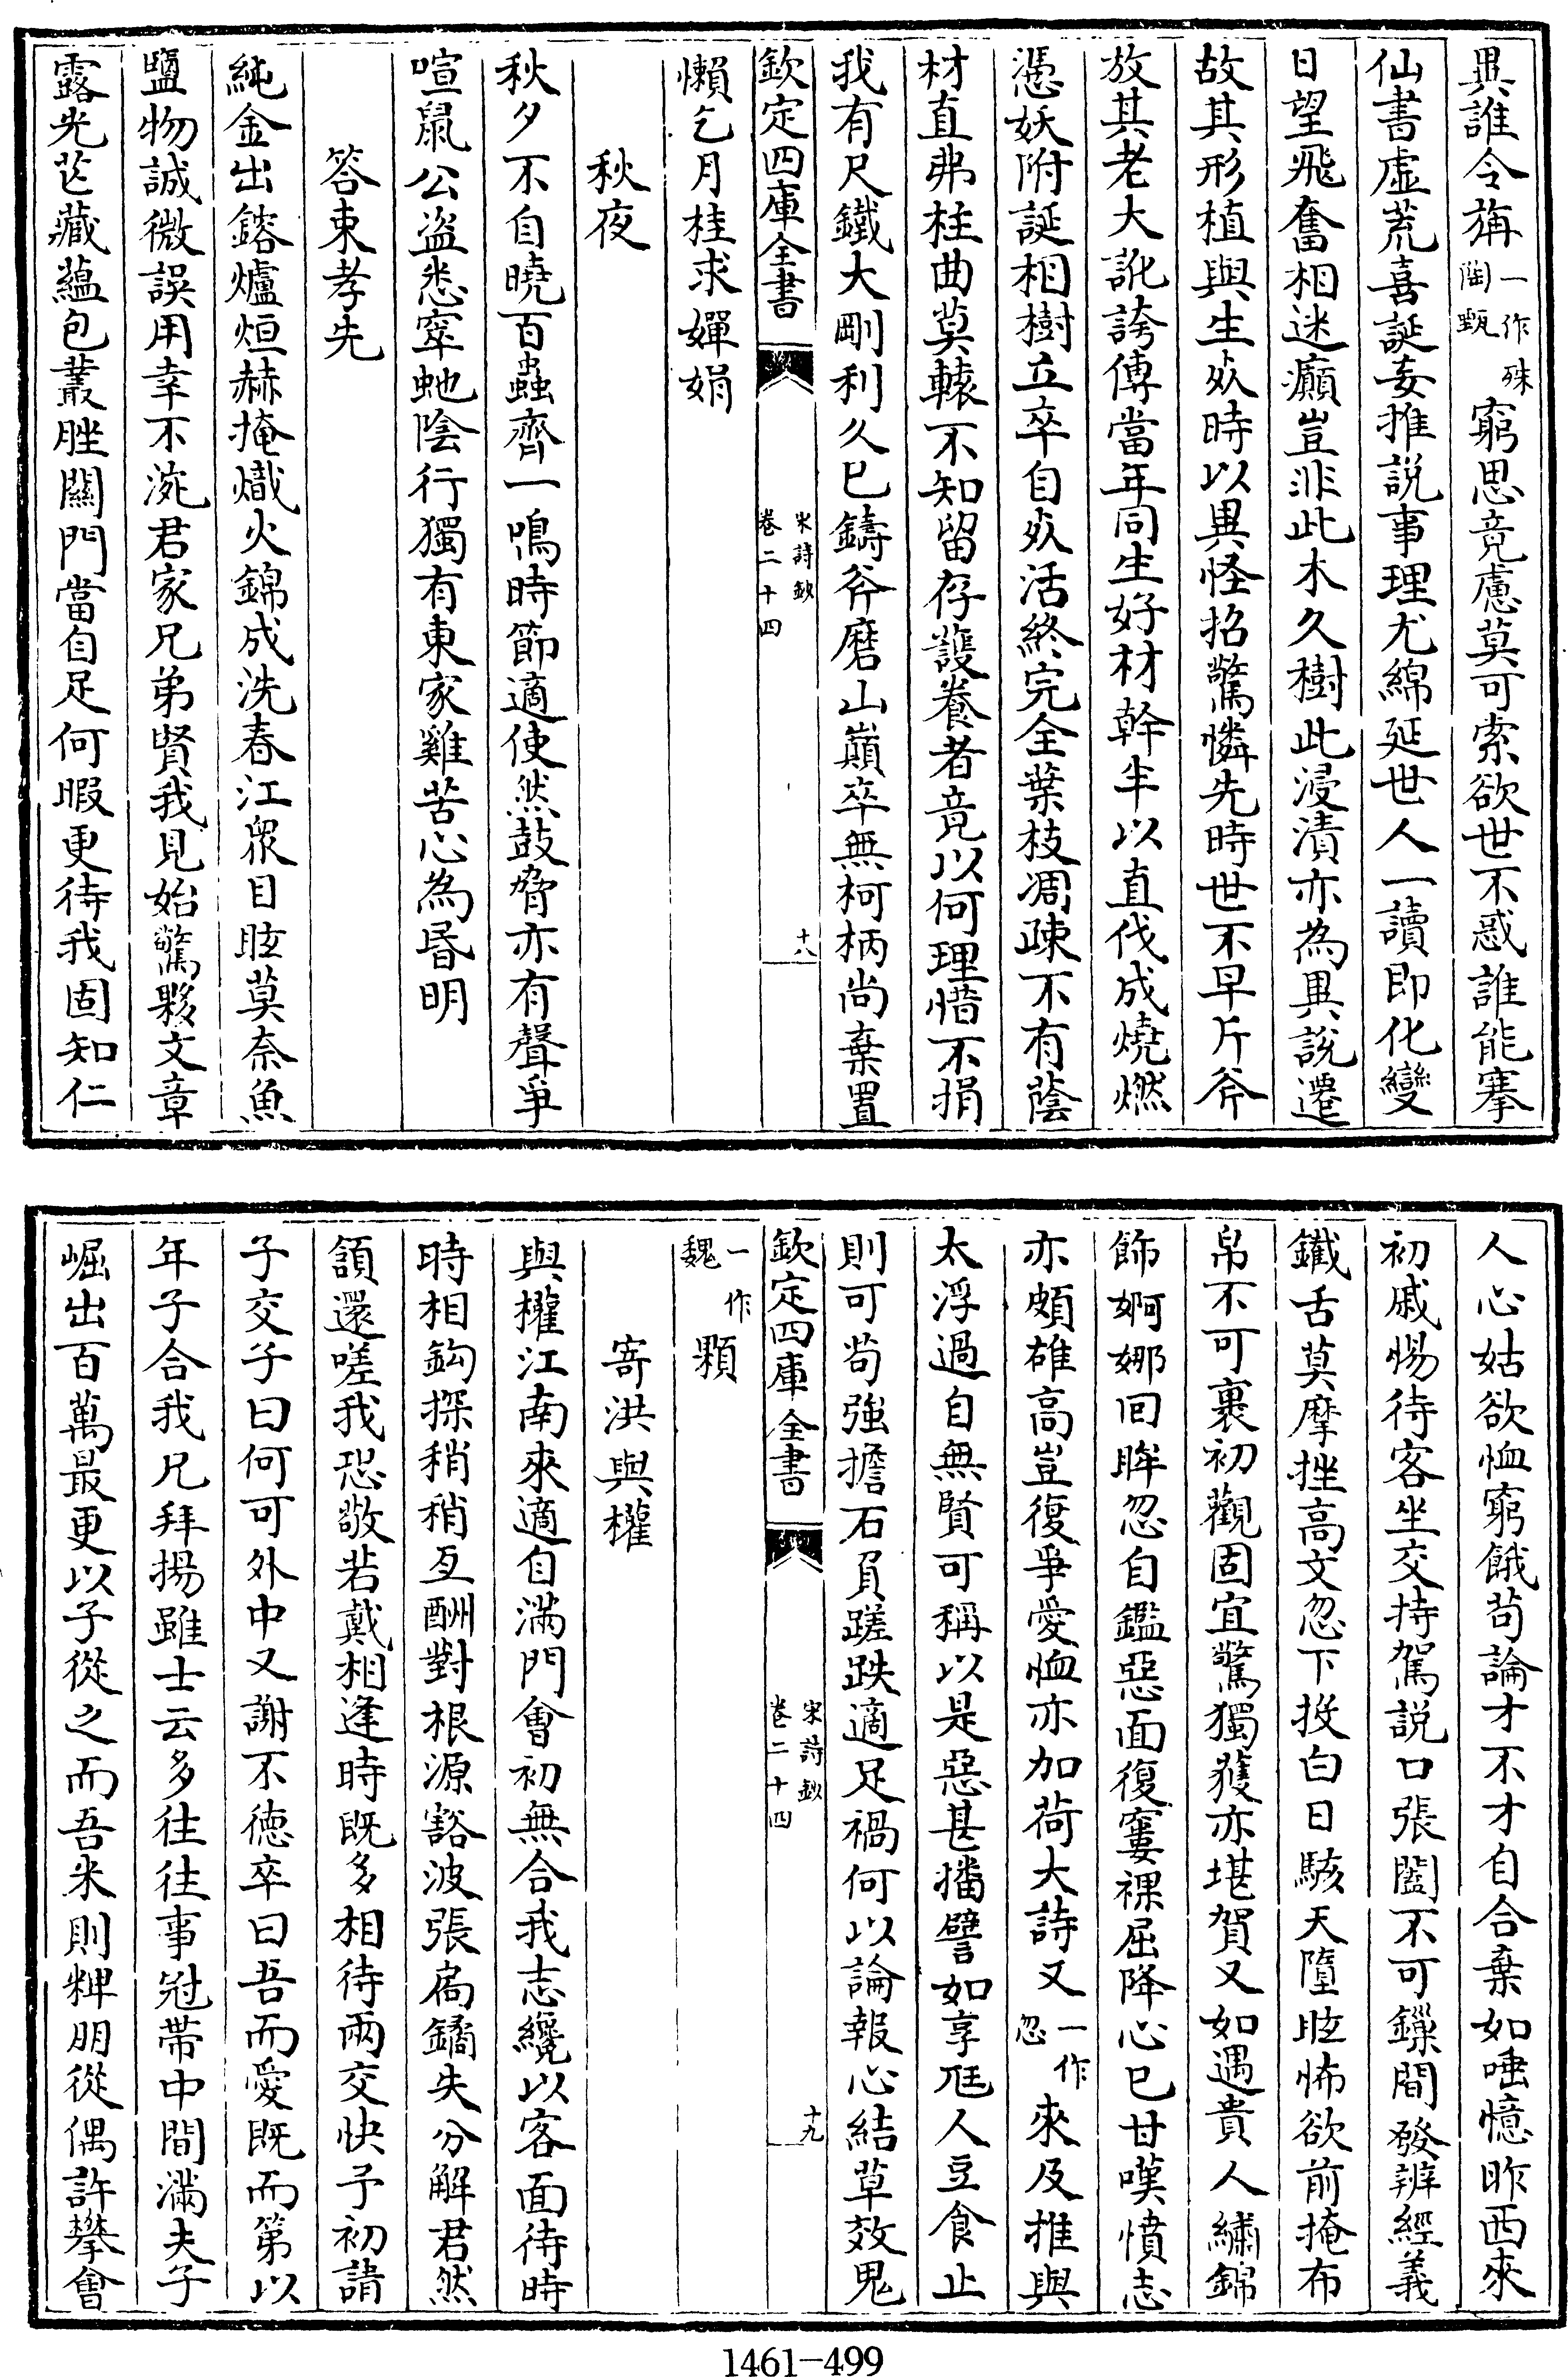 異誰令旃一作殊陶甄窮思竟慮莫可索欲世不惑誰能搴
仙書虛荒喜誕妄推説事理尤綿延世人一讀即化變
日望飛奮相迷癲豈非此木久樹此浸漬亦為異説遷
故其形植與生死時以異怪招驚憐先時世不早斤斧
放其老大訛誇傳當年同生好材幹半以直伐成燒燃
憑妖附誕相樹立卒自死活終完全葉枝凋疎不有蔭
材直弗柱曲莫轅不知留存護養者竟以何理惜不捐
我有尺鐵大剛利久已鑄斧磨山巔卒無柯柄尚棄置
欽定四庫全書
宋詩鈔
卷二十四
十八
懶乞月桂求嬋娟
秋夜
秋夕不自曉百蟲齊一鳴時節適使然鼓脅亦有聲爭
喧鼠公盜悉窣虵陰行獨有東家雞苦心為昏明
答束孝先
純金出鎔爐烜赫掩熾火錦成洗春江衆目眩莫奈魚
鹽物誠微誤用幸不涴君家兄弟賢我見始驚夥文章
露光芒藏蘊包叢脞關門當自足何暇更待我固知仁
人心姑欲恤窮餓苟論才不才自合棄如唾憶昨西來
初戚惕待客坐交持駕説口張闔不可鏁間發辨經義
鐵舌莫摩挫高文忽下投白日駭天墮眩怖欲前掩布
帛不可裹初觀固宜驚獨獲亦堪賀又如遇貴人繡錦
飾婀娜回眸忽自鑑惡面復窶裸屈降心已甘嘆憤志
亦頗雄高豈復爭愛恤亦加荷大詩又一作忽來及推與
太浮過自無賢可稱以是惡甚播譬如享尫人豆食止
則可茍強擔石負蹉跌適足禍何以論報心結草效鬼
欽定四庫全書
宋詩鈔
卷二十四
十九
一作魏顆
寄洪與權
與權江南來適自滿門會初無合我志纔以客面待時
時相鈎探稍稍互酬對根源豁波張扃鐍失分解君然
頷還嗟我恐敬若戴相逢時既多相待兩交快予初請
子交子曰何可外中又謝不德卒曰吾而愛既而第以
年子合我兄拜揚雖士云多往往事冠帶中間滿夫子
崛出百萬最更以子從之而吾米則粺朋從偶許攀會
1461-499